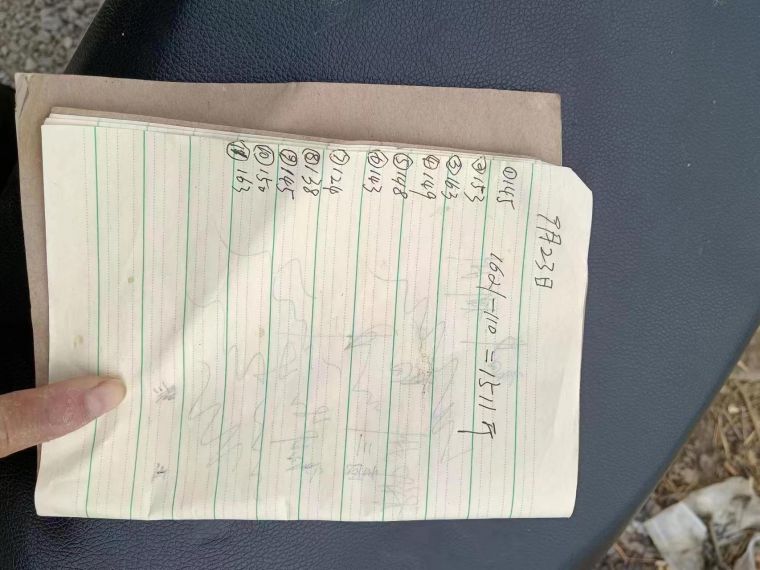 9月23日
①145
1621-110=1511斤
②153
③163
④149
⑤148
⑥143
⑦124
⑧138
⑨145
⑩150
⑪163